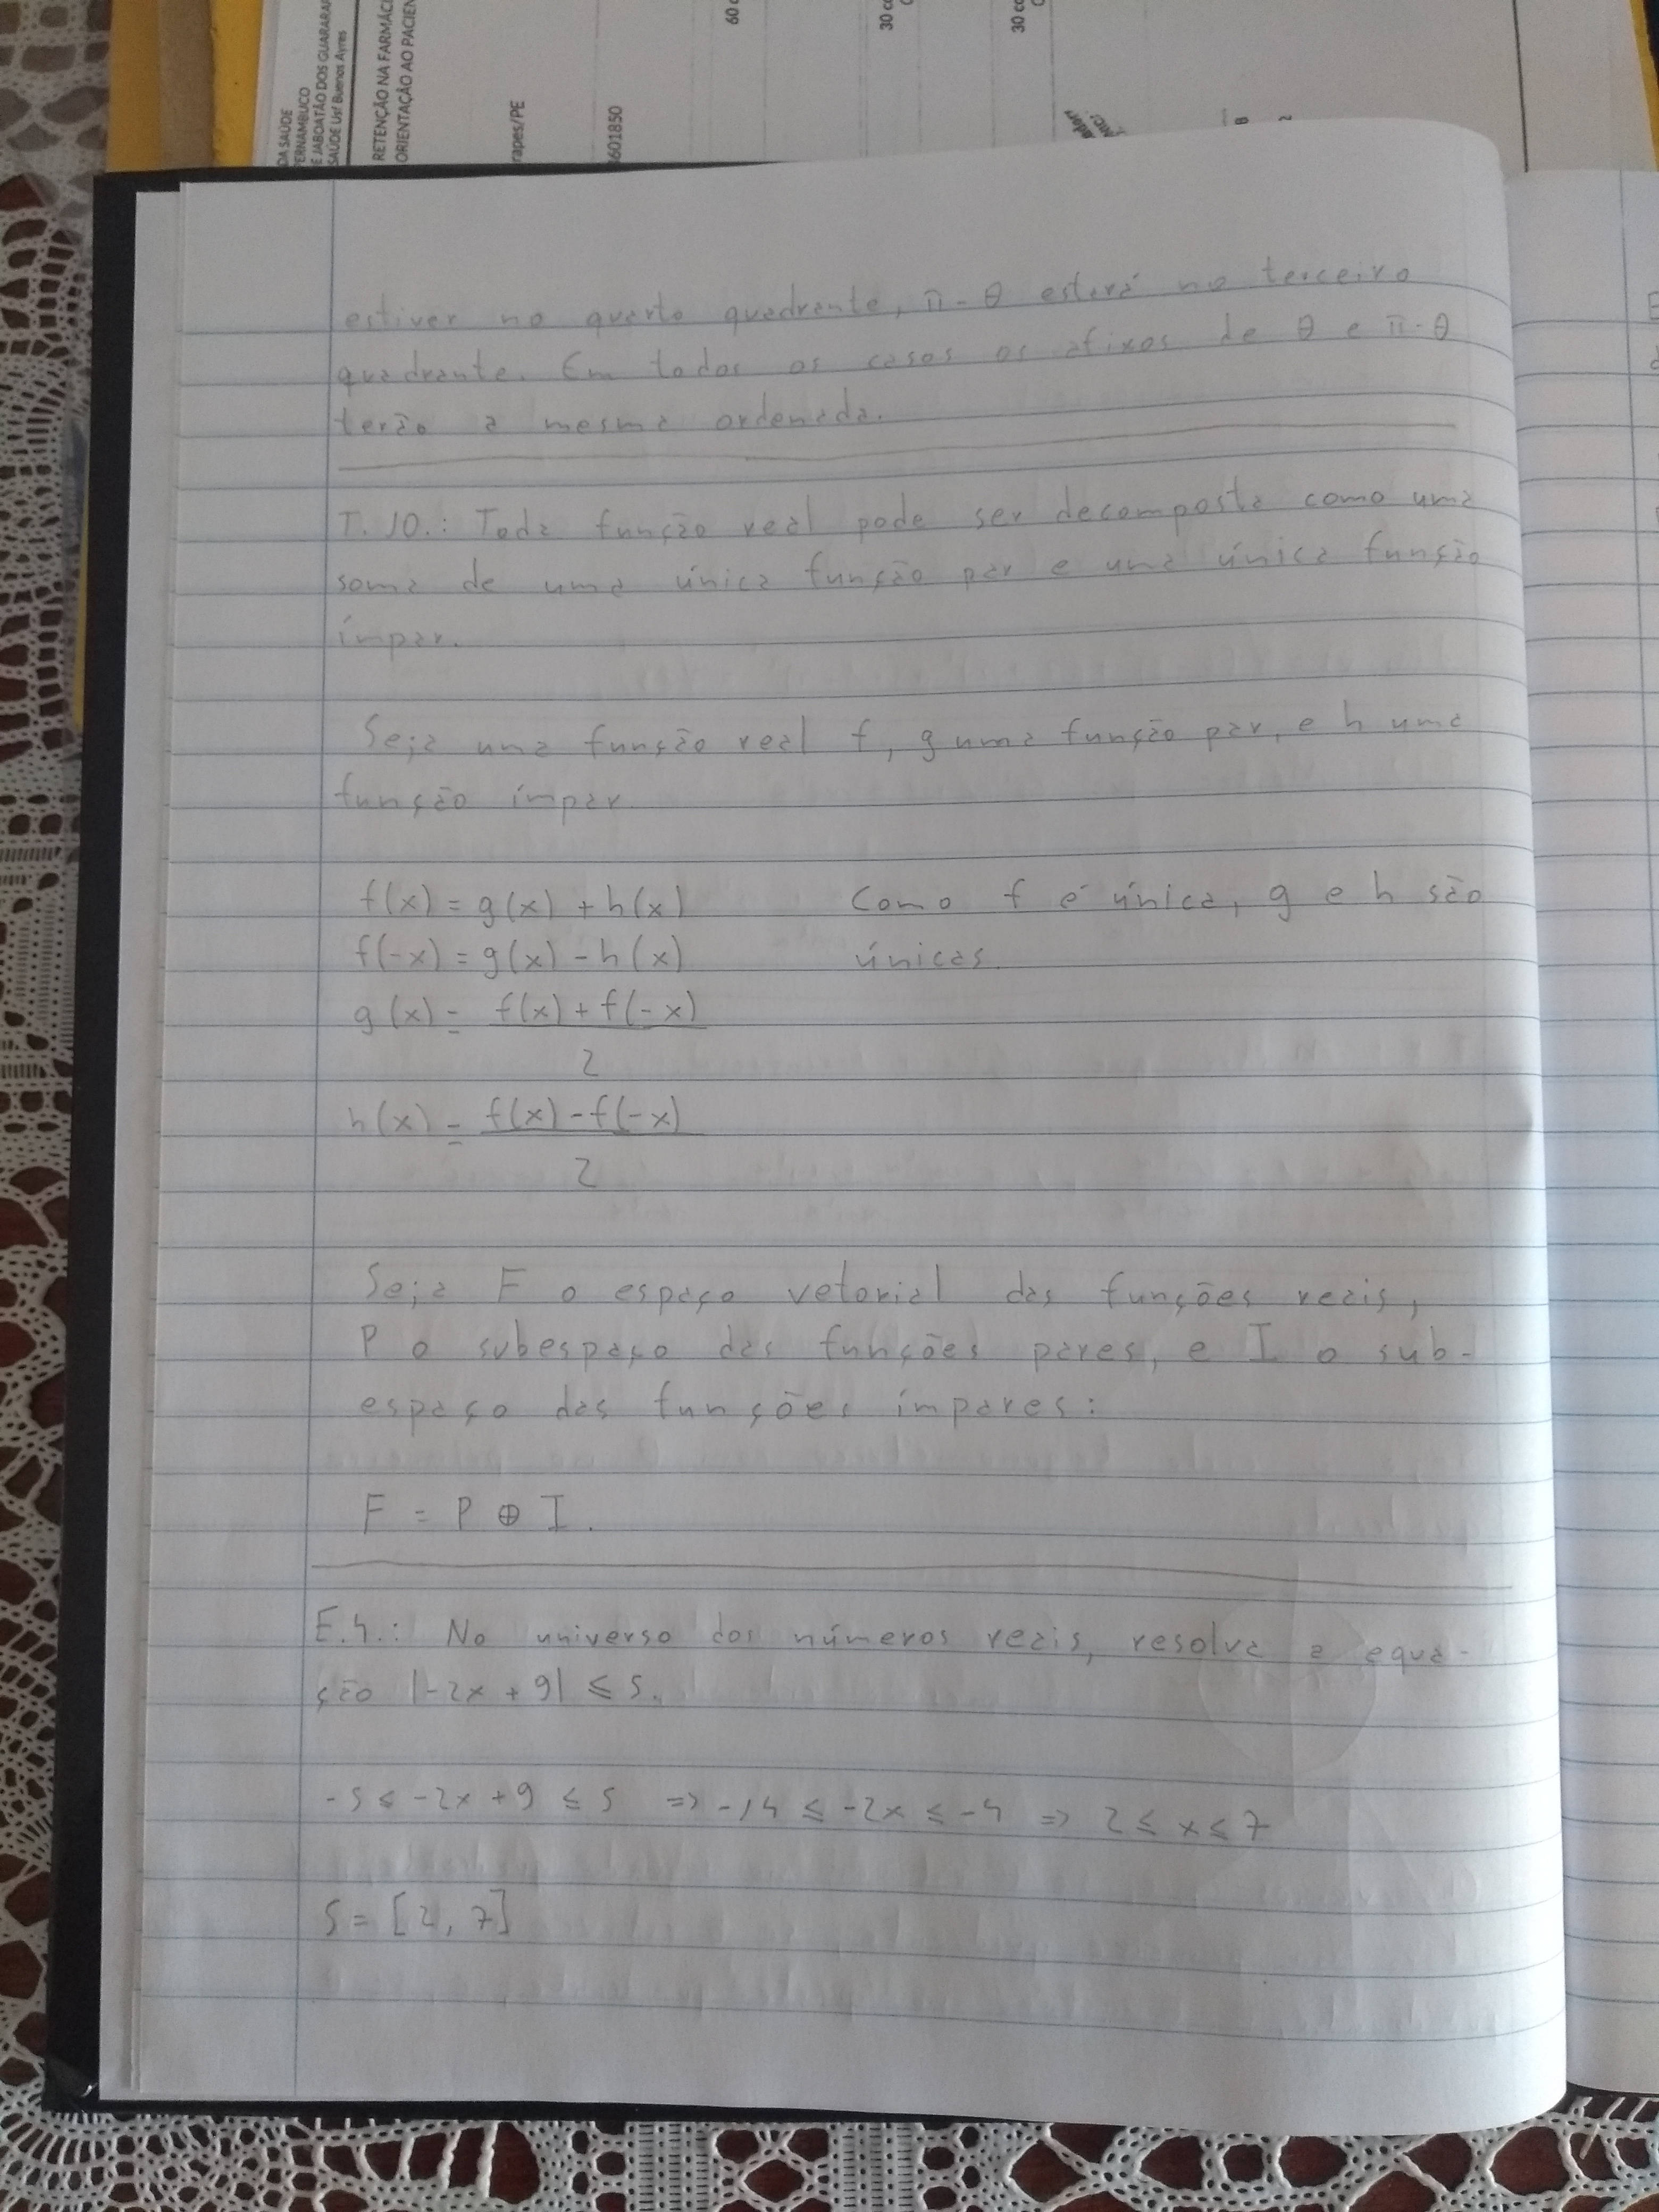 DA SAÚDE
PERNAMBUCO
E JABOATÃO DOS GUARARAP
SAÚDE Usf Buenos Ayres
RETENÇÃO NA FARMÁCI
ORIENTAÇÃO AO PACIEN
rapes/PE
6601850
60 c
30 co
30 co
estiver no quarto quadrante, π - θ estará no terceiro
quadrante. Em todos os casos os afixos de θ e π - θ
terão a mesma ordenada.
T. 10.: Toda função real pode ser decomposta como uma
soma de uma única função par e uma única função
ímpar.
Seja uma função real f, g uma função par, e h uma
função ímpar.
f(x) = g(x) + h(x) Como f é única, g e h são
f(-x) = g(x) - h(x) únicas.
g(x) = f(x) + f(-x)
2
h(x) = f(x) - f(-x)
2
Seja F o espaço vetorial das funções reais,
P o subespaço das funções pares, e I o sub-
espaço das funções ímpares:
F = P ⊕ I.
E.4.: No universo dos números reais, resolva a equa-
ção |-2x + 9| ≤ 5.
-5 ≤ -2x + 9 ≤ 5 => -14 ≤ -2x ≤ -4 => 2 ≤ x ≤ 7
S = [2, 7]